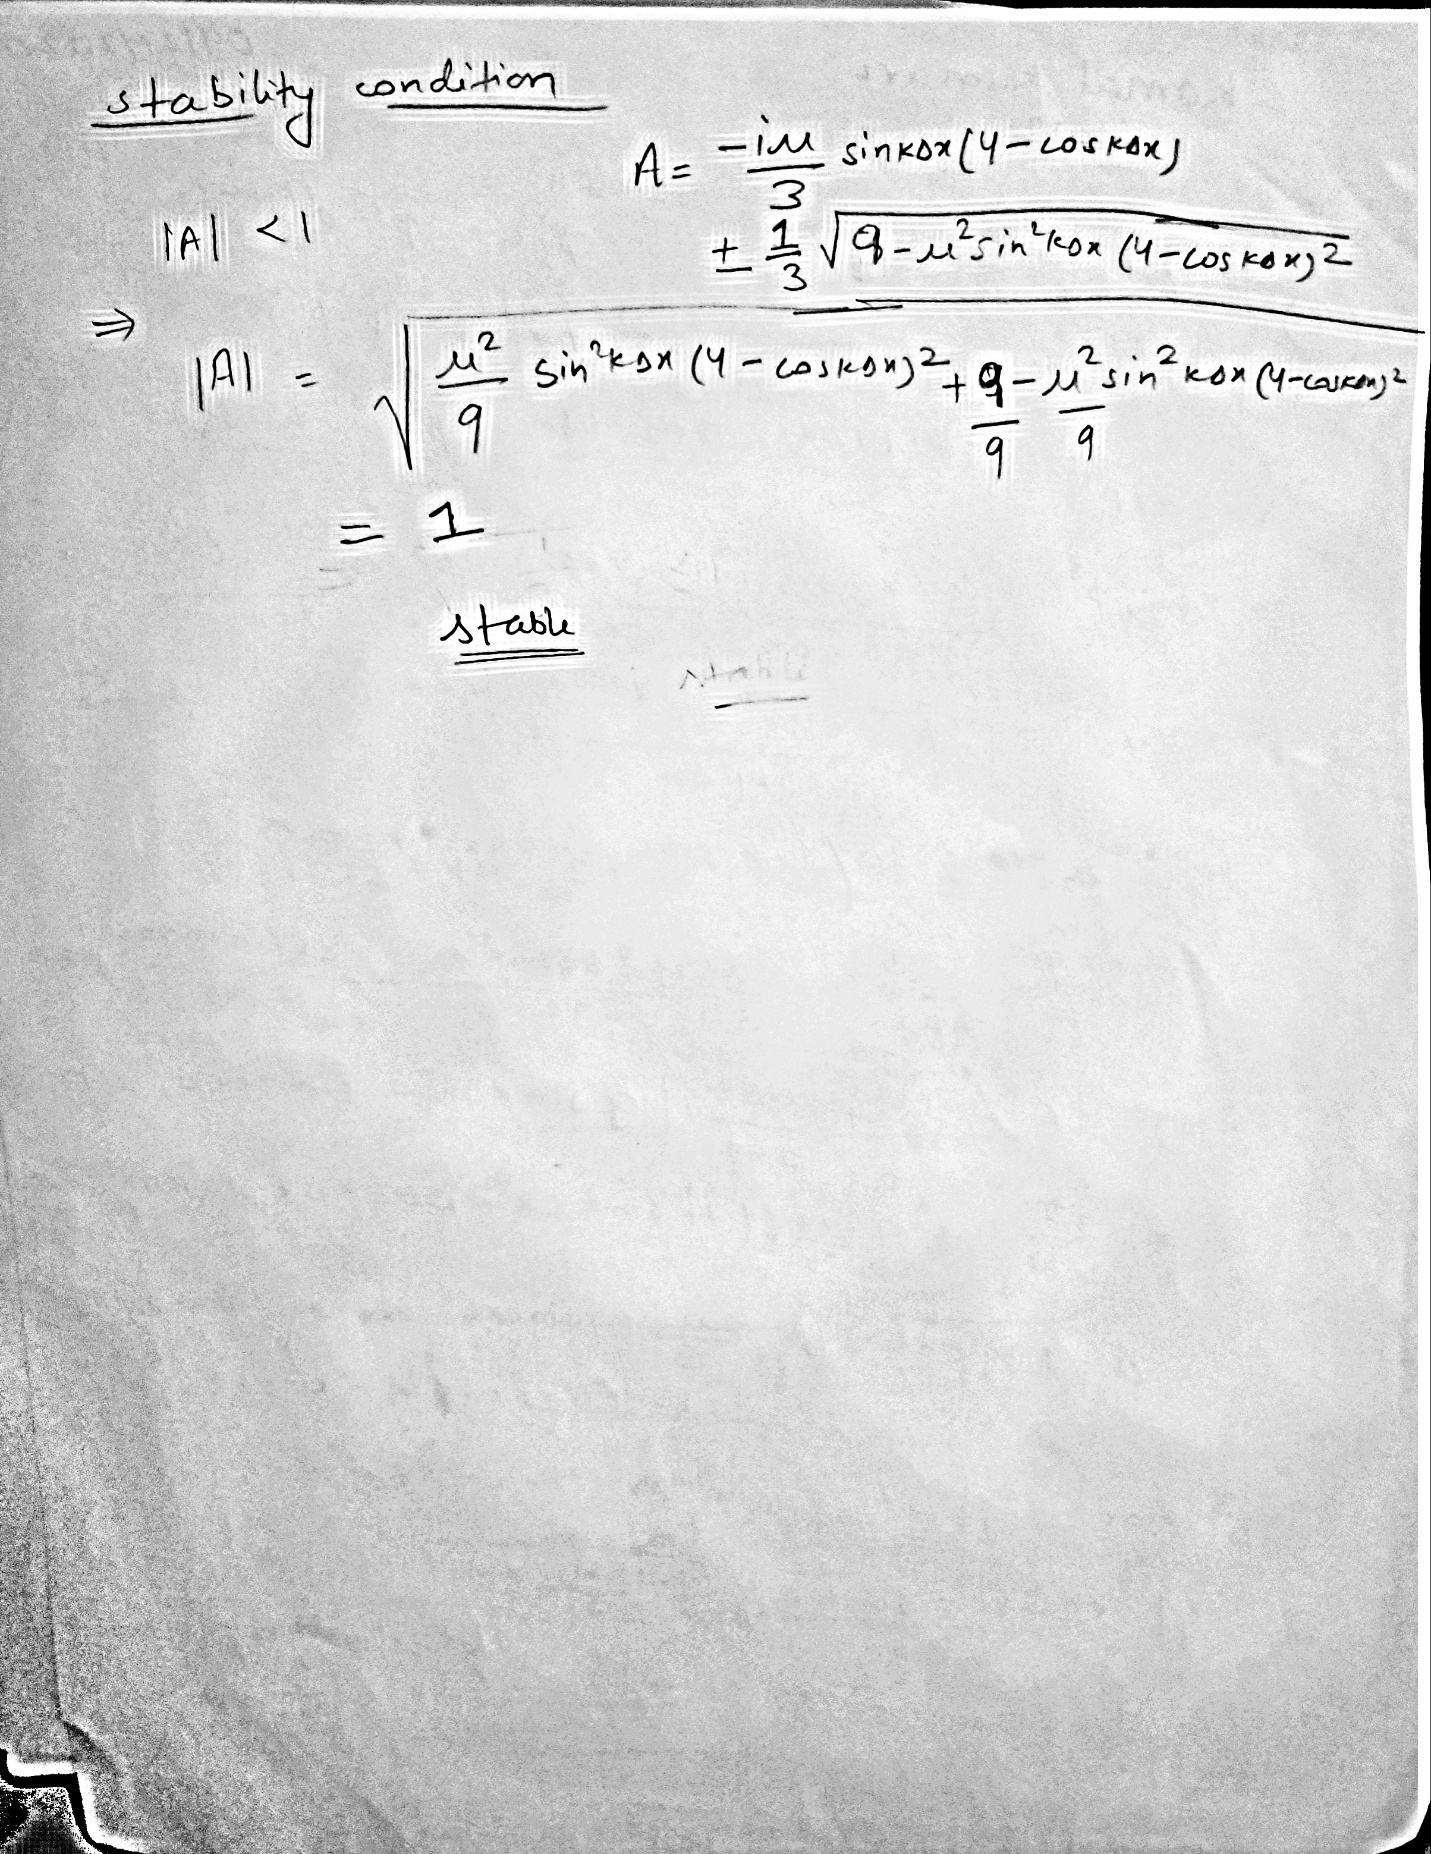 stability condition
A = -iμ/3 sinkΔx(4-coskΔx)
± 1/3 √(9-μ²sin²kΔx (4-coskΔx)²)
|A| < 1
⇒
|A| = √(μ²/9 sin²kΔx (4-coskΔx)² + 9/9 - μ²/9 sin²kΔx (4-coskΔx)²)
= 1
stable